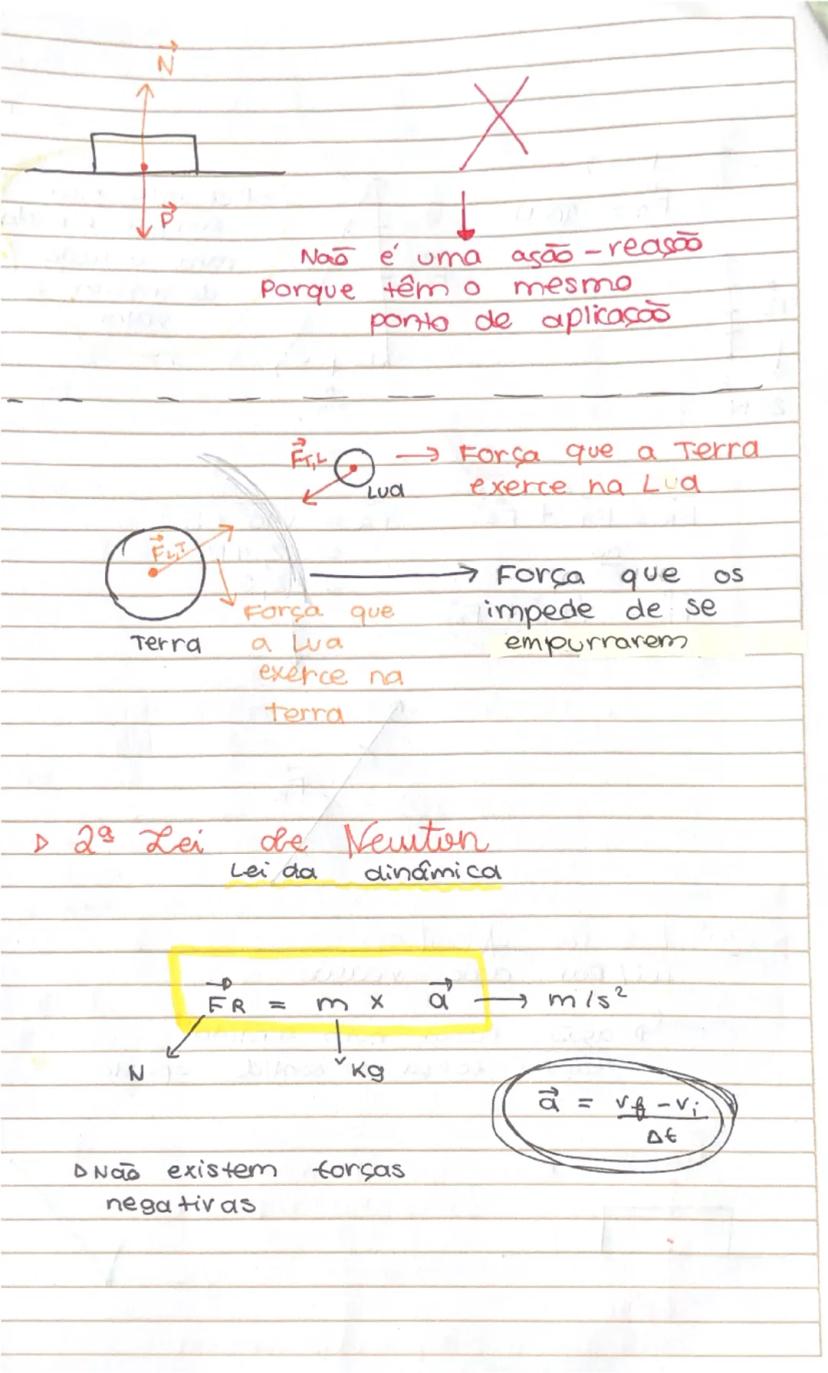 N
P
Não é uma ação-reasão
Porque têm o mesmo
ponto de aplicação
FT,L
Lua
→ Força que a Terra
exerce na Lua
FL,T
Terra
Força que
a Lua
exerce na
terra
→ Força que os
impede de se
empurrarem
▷ 2ª Lei de Newton
Lei da dinâmica
FR = m x a → m/s²
N
Kg
a = vf - vi
Δt
▷ Não existem forças
negativas